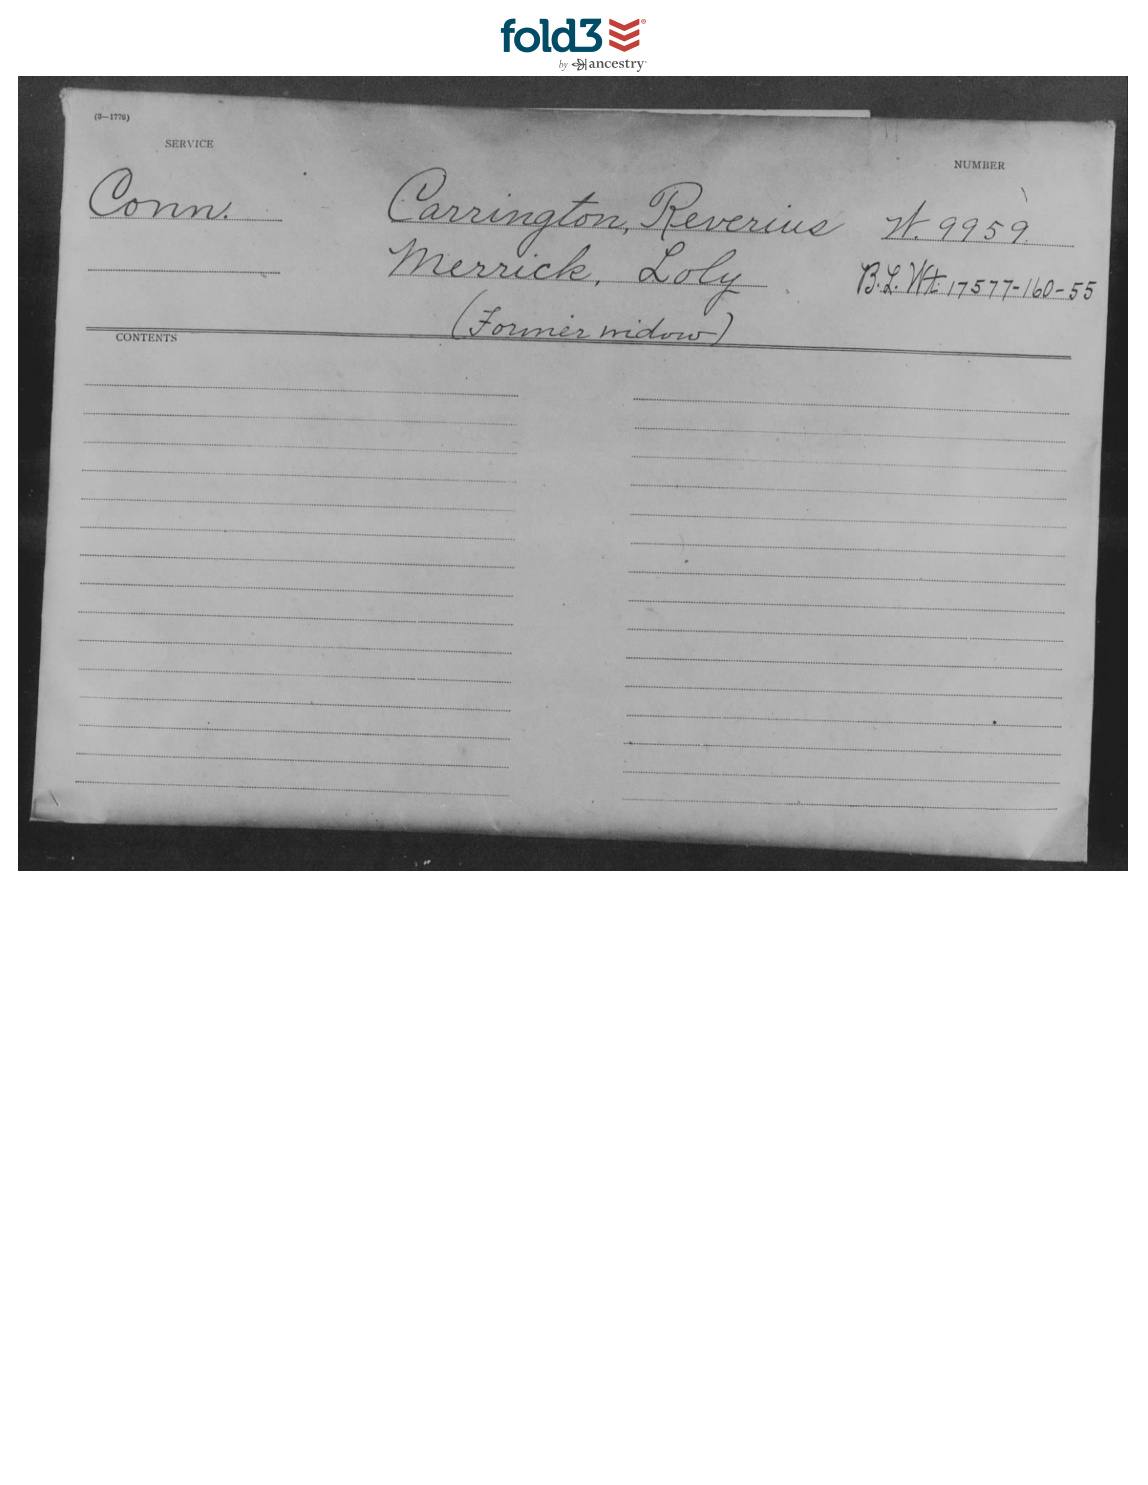 fold3
by ancestry
(3—1776)
SERVICE
NUMBER
Conn.
Carrington, Reverius
W. 9959.
Merrick, Loly
B.L. Wt. 17577-160-55
(Former widow)
CONTENTS